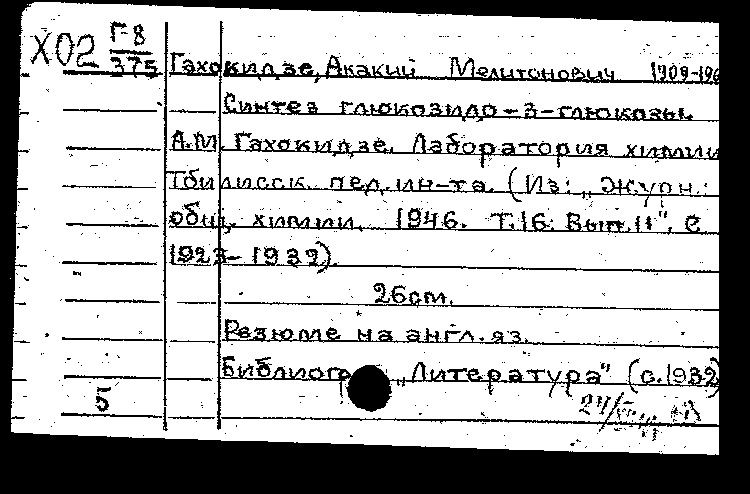 Х02 Г-8
375
Гахокидзе, Акакий Мелитонович 1909-196
Синтез глюкозидо-3-глюкозы.
А.М. Гахокидзе. Лаборатория химии
Тбилисск. пед. ин-та. (Из: „Журн.
общ. химии. 1946. Т.16. Вып. 11". С
1923-1932).
26cm.
Резюме на англ. яз.
Библиогр „Литература" (с.1932)
5